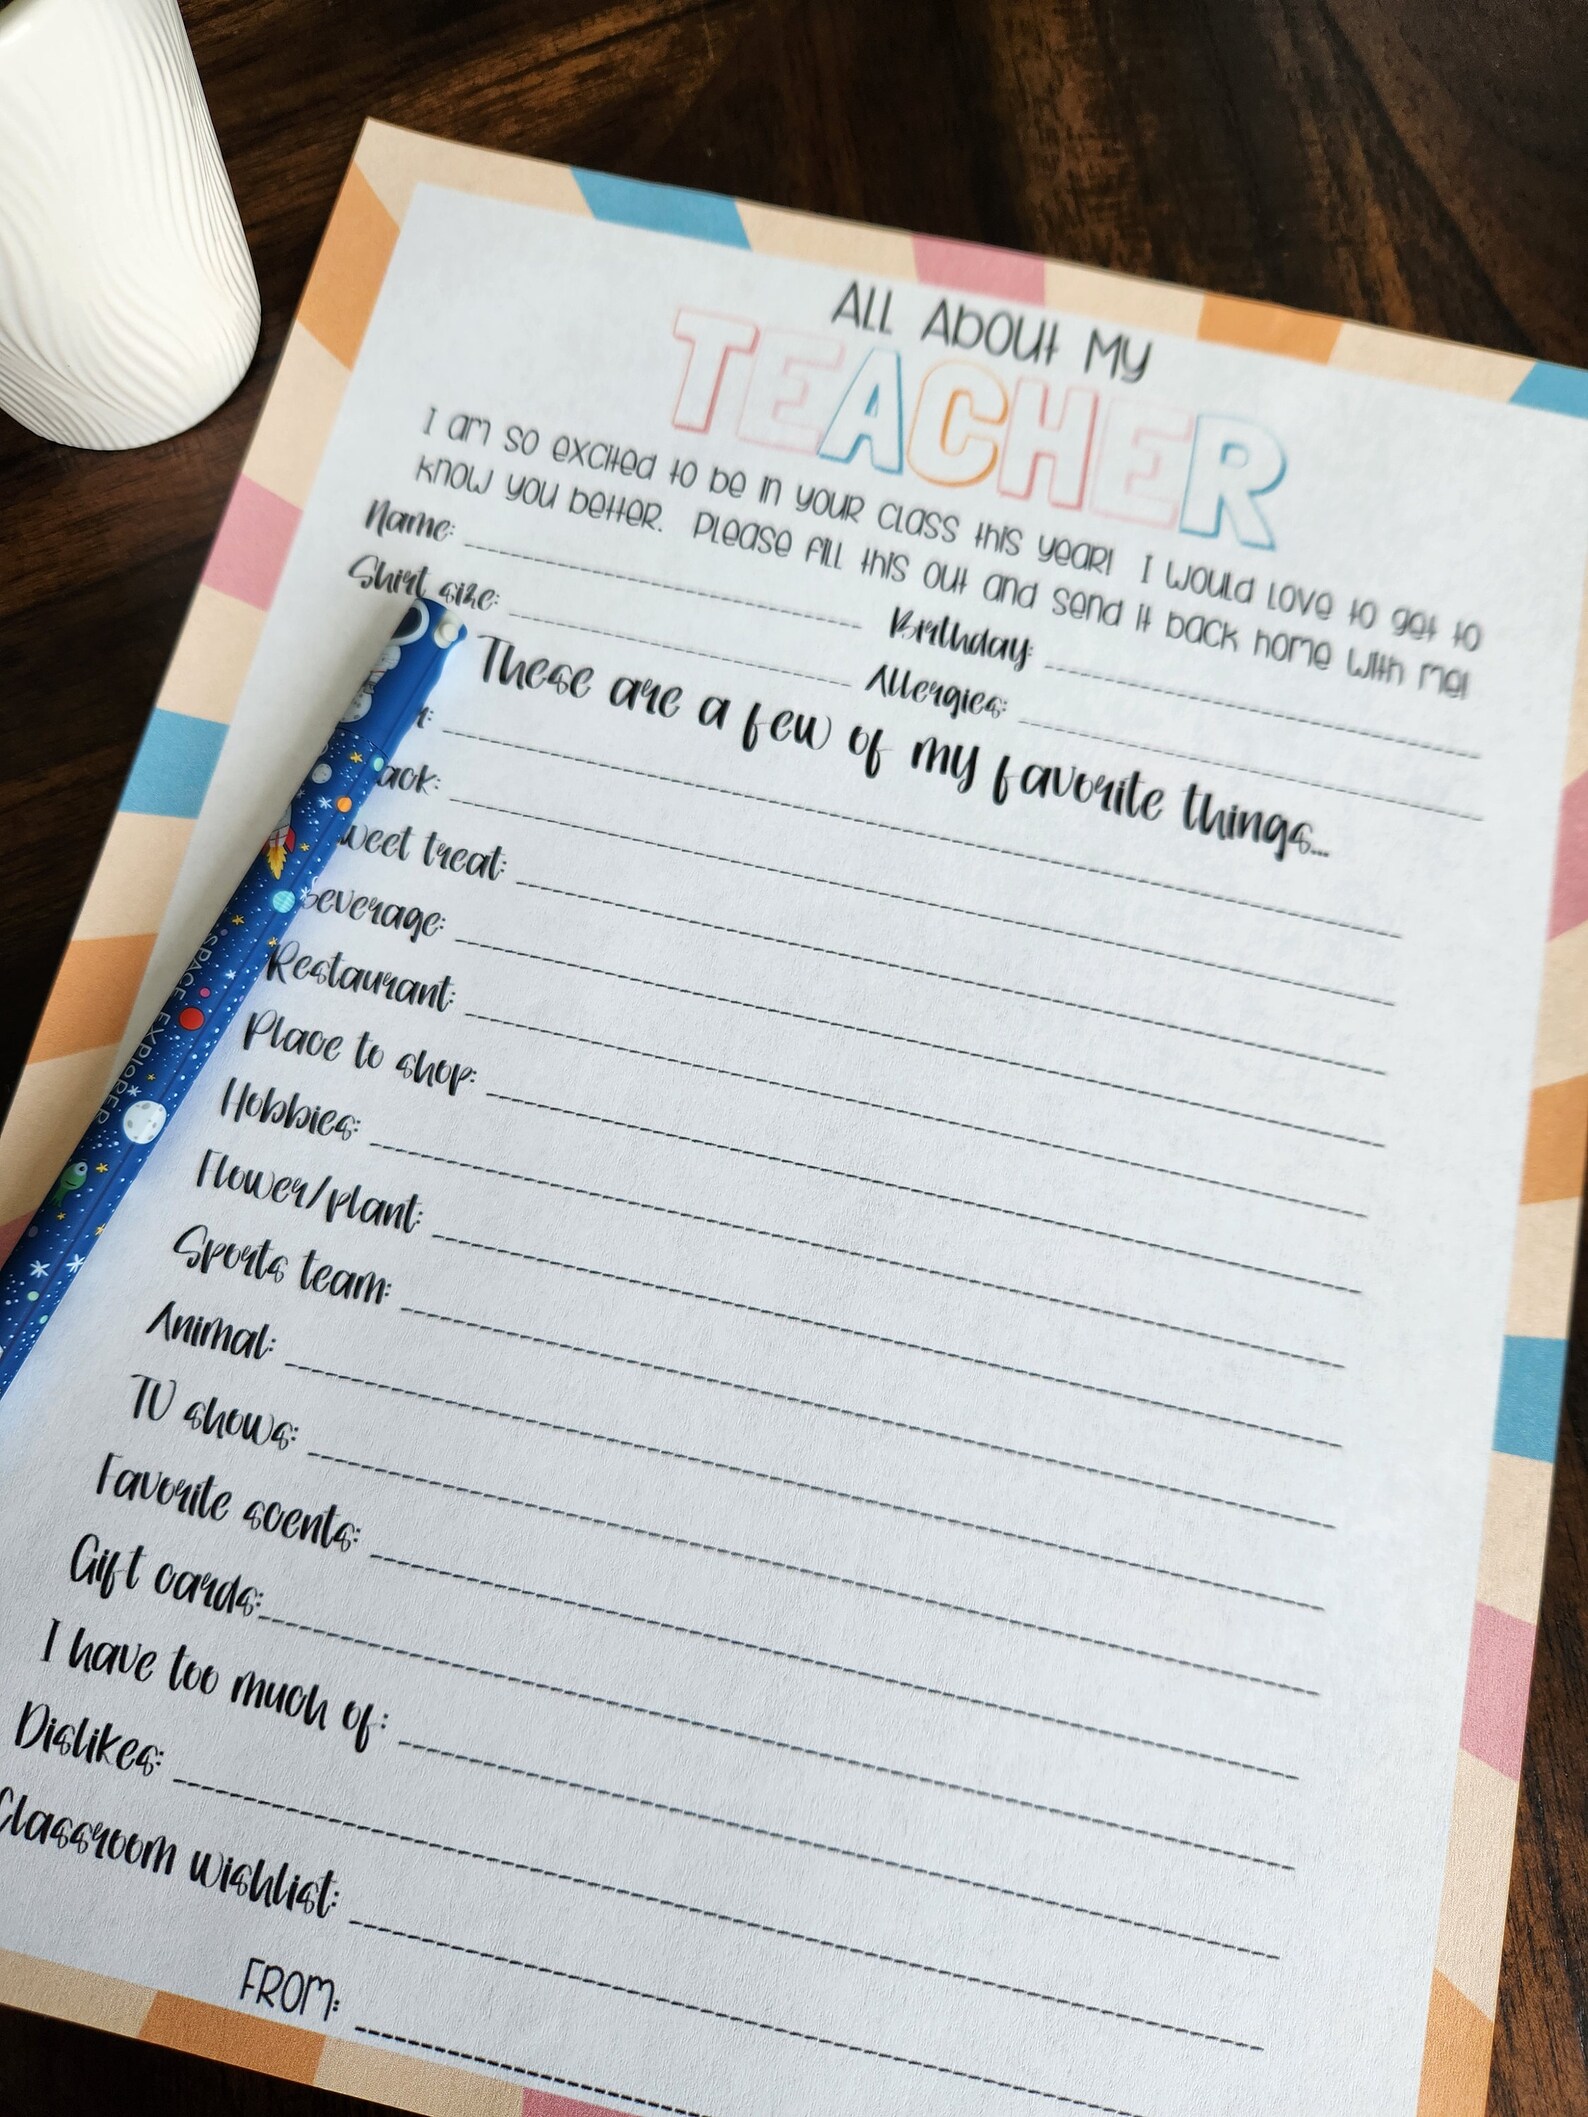 All About My
TEACHER
I am so excited to be in your class this year! I would love to get to
know you better. Please fill this out and send it back home with me!
Name:
Birthday:
Shirt size:
Allergies:
These are a few of my favorite things...
r:
ack:
weet treat:
Beverage:
Restaurant:
Place to shop:
Hobbies:
Flower/plant:
Sports team:
Animal:
TV shows:
Favorite scents:
Gift cards:
I have too much of:
Dislikes:
Classroom wishlist:
FROM:
SPACE EXPLORER